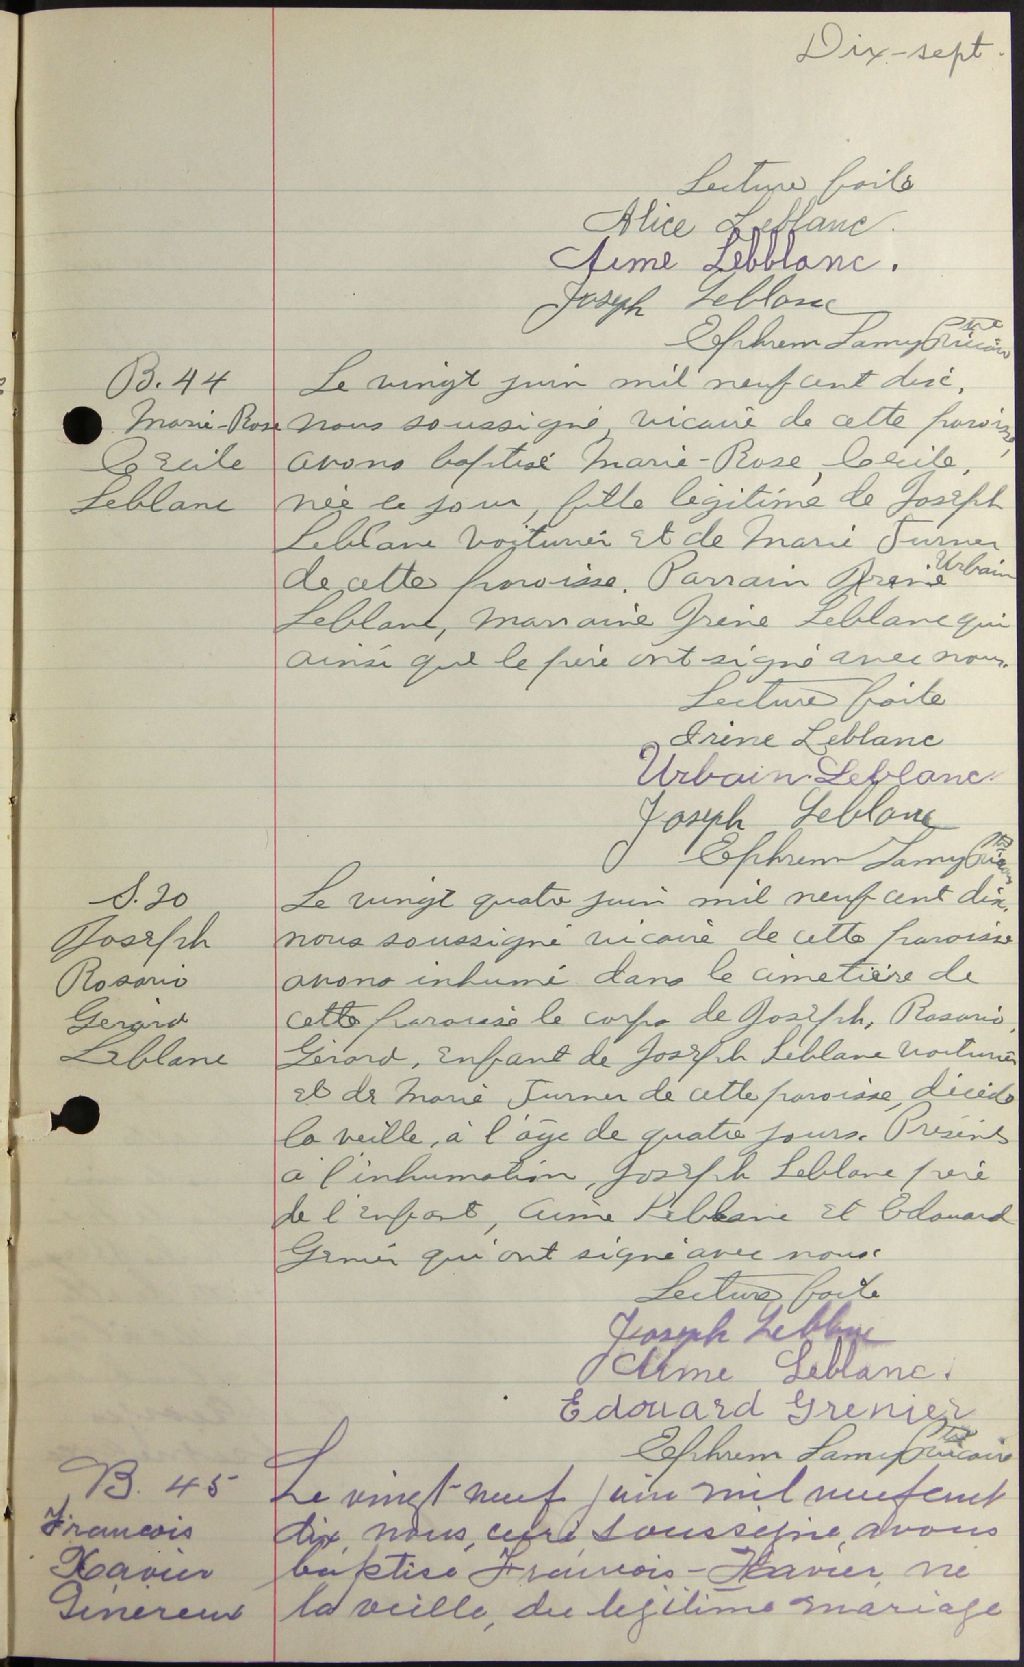 Dix-sept.
Lecture faite
Alice Leblanc.
Aime Lebblanc.
Joseph Leblanc
Ephrem Lamy Ptre Vicaire
B. 44
Marie-Rose
Cécile
Leblanc
Le vingt juin mil neuf cent dix,
nous soussigné, vicaire de cette paroisse,
avons baptisé Marie-Rose, Cécile,
née ce jour, fille légitime de Joseph
Leblanc voiturier et de Marie Turner
de cette paroisse. Parrain Urbain
Leblanc, marraine Irène Leblanc qui
ainsi que le père ont signé avec nous.
Lecture faite
Irène Leblanc
Urbain Leblanc.
Joseph Leblanc
Ephrem Lamy Ptre Vicaire
S. 20
Joseph
Rosario
Gérard
Leblanc
Le vingt quatre juin mil neuf cent dix,
nous soussigné vicaire de cette paroisse
avons inhumé dans le cimetière de
cette paroisse le corps de Joseph, Rosario,
Gérard, enfant de Joseph Leblanc voiturier
et de Marie Turner de cette paroisse, décédé
la veille, à l'âge de quatre jours. Présents
à l'inhumation, Joseph Leblanc père
de l'enfant, Aimé Leblanc et Edouard
Grenier qui ont signé avec nous.
Lecture faite
Joseph Leblanc
Aime Leblanc.
Edouard Grenier
Ephrem Lamy Ptre Vicaire
B. 45
Francois
Xavier
Généreux
Le vingt-neuf juin mil neuf cent
dix, nous, curé soussigné, avons
baptisé François-Xavier, né
la veille, du légitime mariage